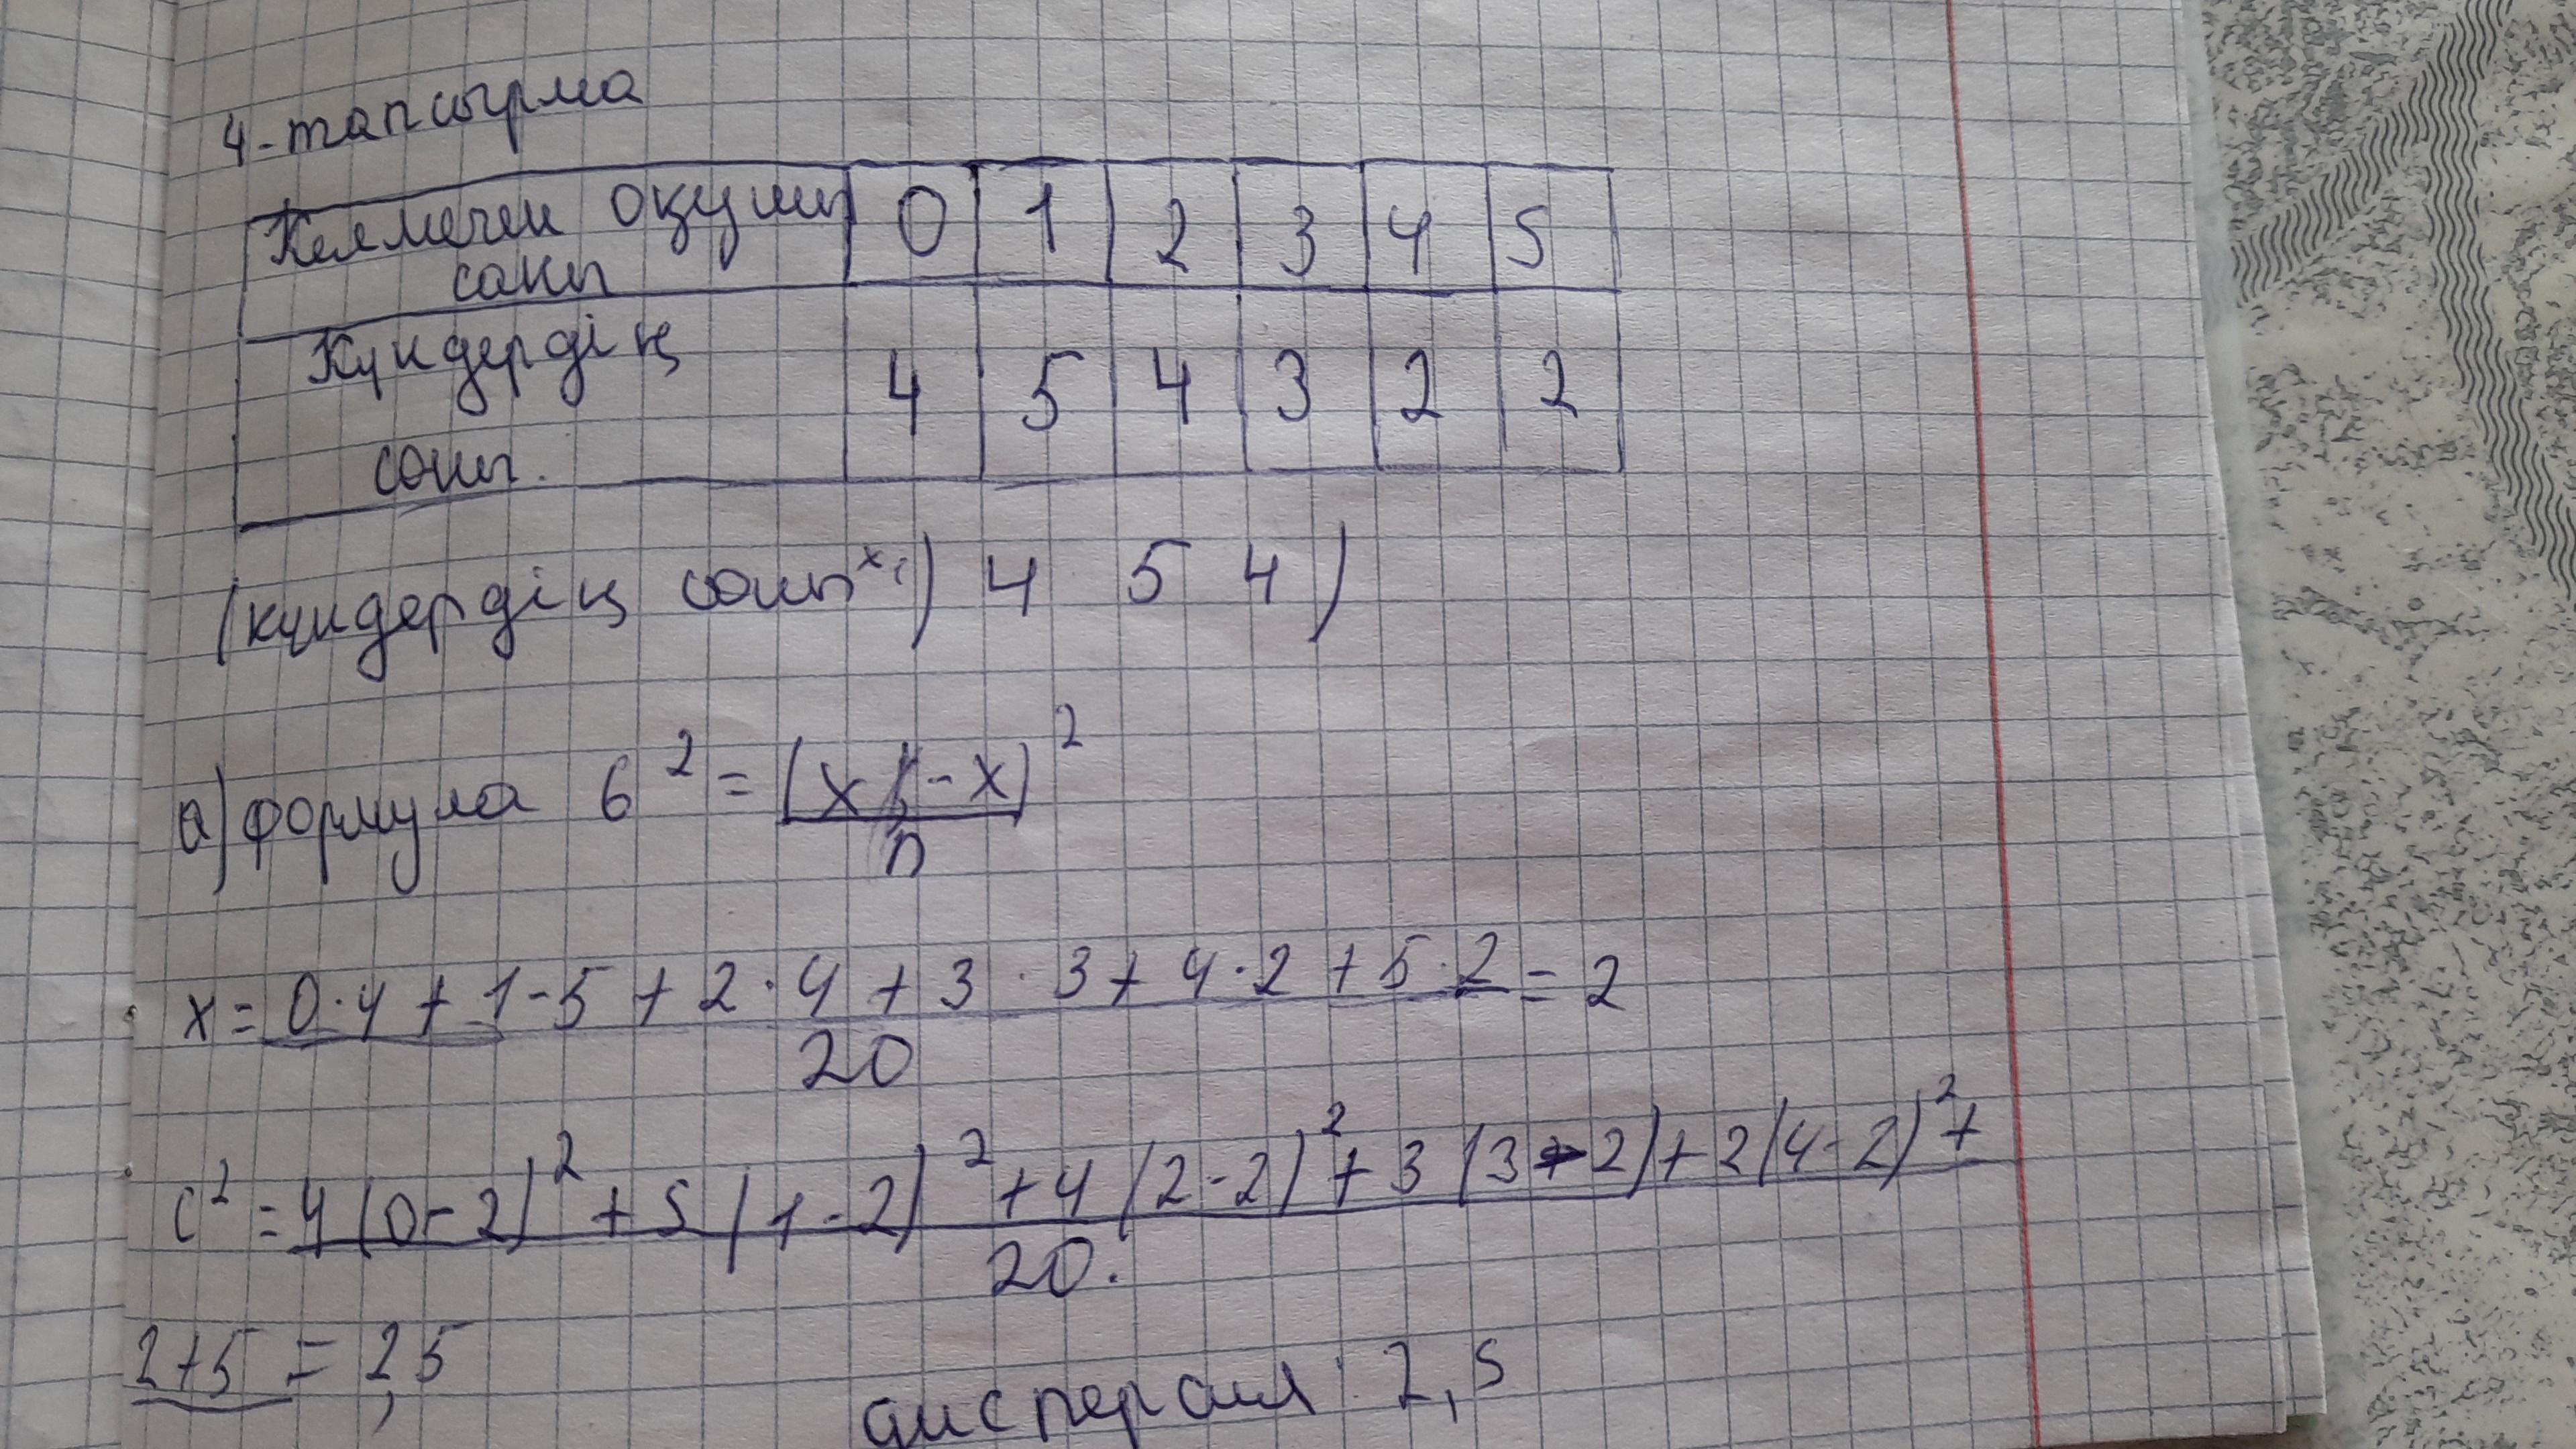 4-тапсырма
Келмеген оқушы саны 0 1 2 3 4 5
Күндердің саны. 4 5 4 3 2 2
(күндердің саны xi) 4 5 4)
а) формула б² = (xi - x)² / n
x = 0·4 + 1-5 + 2·4 + 3·3 + 4·2 + 5·2 / 20 = 2
c² = 4(0-2)² + 5(1-2)² + 4(2-2)² + 3(3-2) + 2(4-2)² + / 20.
2+5 = 2,5
дисперсия: 2,5